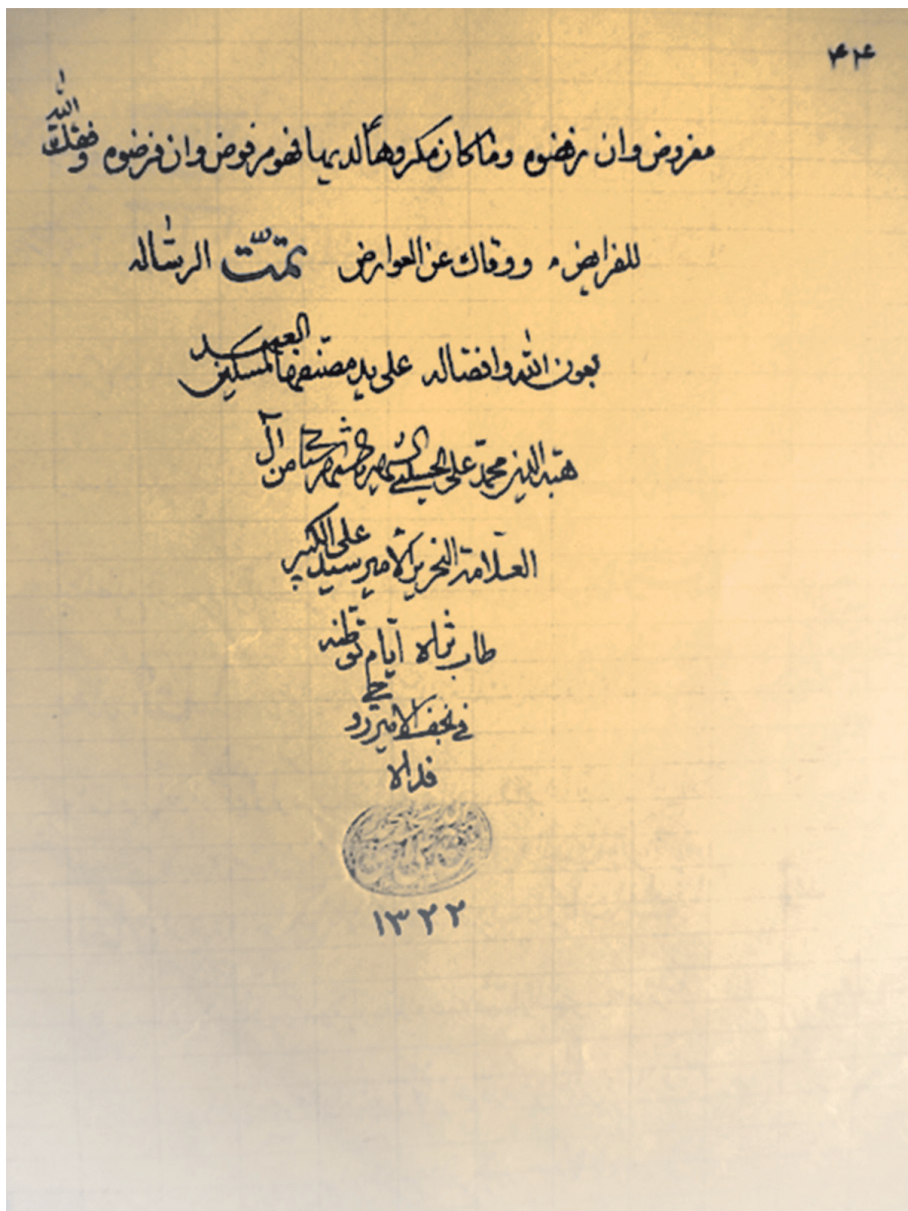 ۴۴
مفروض وان رفضوه وما كان مكروهاً لديها فهو مرفوض وان فرضوه وفقك الله
للفرايض ووقاك عن العوارض تمّت الرساله
بعون الله وافضاله على يد مصنفها العبد المسكين
هبة الدين محمد علي الحسيني الشهير من آل
العلامة النحرير الامير سيد علي الكبير
طاب ثراه ايام توطنه
في نجف الامير روحي
فداه
١٣٢٢